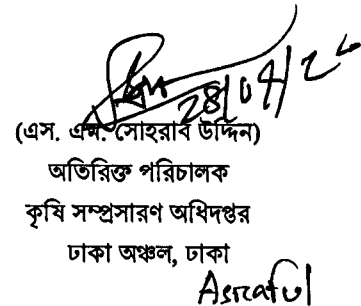 ২৪/০৭/২৮
(এস. এম. সোহরাব উদ্দিন)
অতিরিক্ত পরিচালক
কৃষি সম্প্রসারণ অধিদপ্তর
ঢাকা অঞ্চল, ঢাকা
Asraful